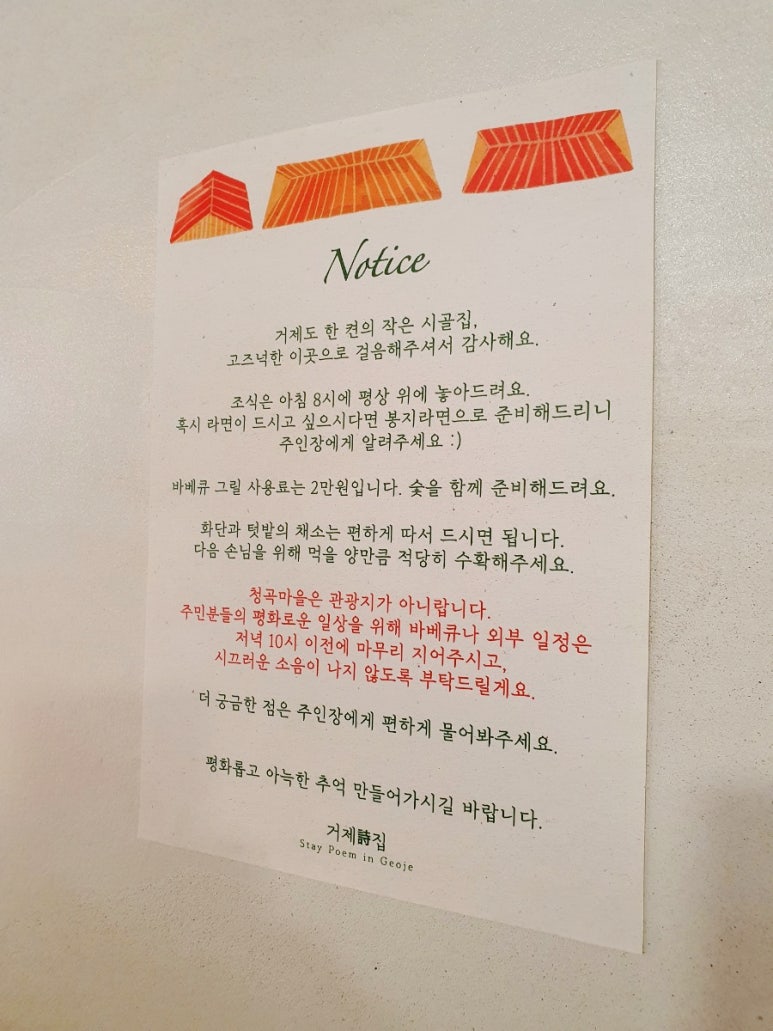 Notice
거제도 한 켠의 작은 시골집,
고즈넉한 이곳으로 걸음해주셔서 감사해요.
조식은 아침 8시에 평상 위에 놓아드려요.
혹시 라면이 드시고 싶으시다면 봉지라면으로 준비해드리니
주인장에게 알려주세요 :)
바베큐 그릴 사용료는 2만원입니다. 숯을 함께 준비해드려요.
화단과 텃밭의 채소는 편하게 따서 드시면 됩니다.
다음 손님을 위해 먹을 양만큼 적당히 수확해주세요.
청곡마을은 관광지가 아니랍니다.
주민분들의 평화로운 일상을 위해 바베큐나 외부 일정은
저녁 10시 이전에 마무리 지어주시고,
시끄러운 소음이 나지 않도록 부탁드릴게요.
더 궁금한 점은 주인장에게 편하게 물어봐주세요.
평화롭고 아늑한 추억 만들어가시길 바랍니다.
거제詩집
Stay Poem in Geoje